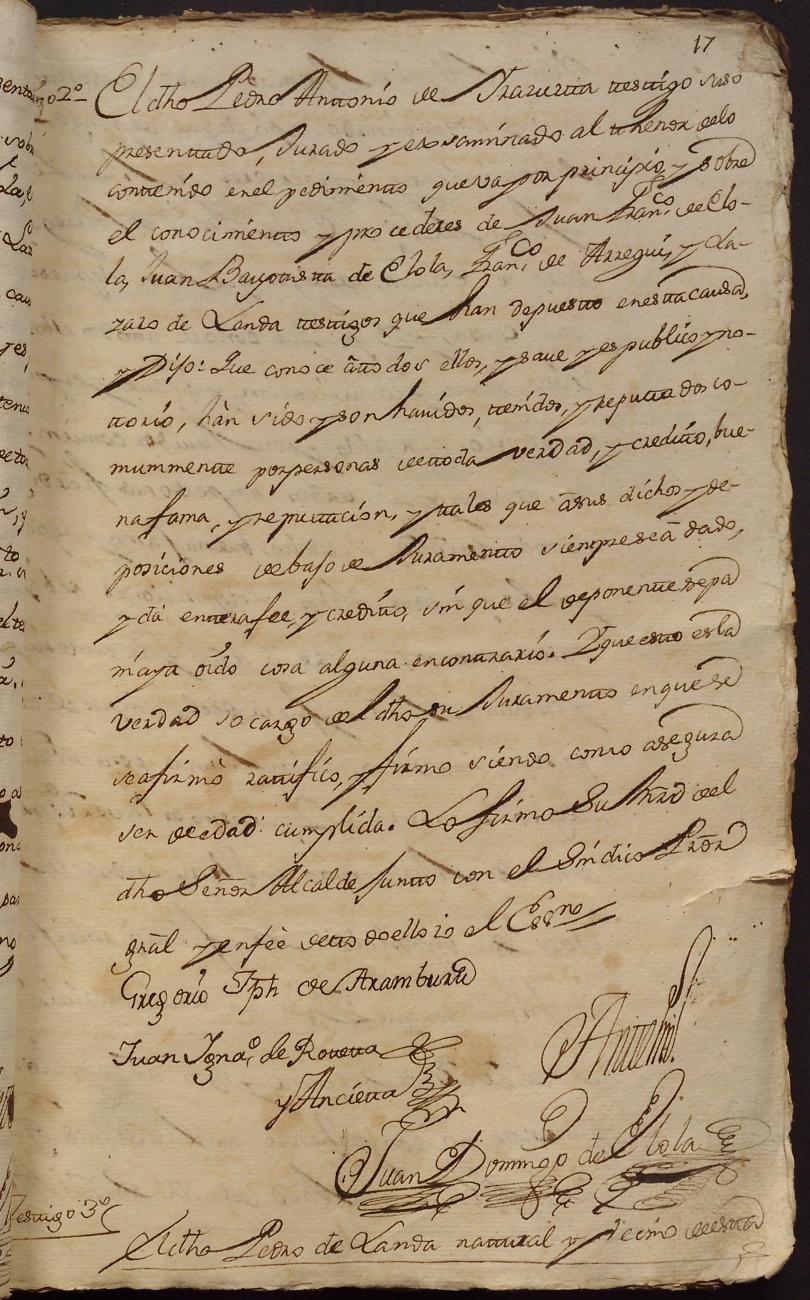 17
El dho Pedro Anttonio de Yraeurtta ttesttigo suso
presenttado, Jurado y exsaminado al tthenor delo
conttenido en el pedimientto que va por principio, y sobre
el conocimientto y procederes de Juan Franco. de Elo-
la, Juan Bapttistta de Elola, Franco. de Arregui, y La-
zaro de Landa ttesttigos que han depuestto en estta causa,
y Dijo: Que conoce a ttodos ellos, y save y es publico y no-
ttorio, han sido y son havidos, ttenidos, y reputtados co-
munmentte por personas de ttoda verdad, y creditto, bue-
na fama, y reputtacion, y ttales que a sus dichos y de-
posiciones debajo de Juramentto siempre se a dado,
y da entterafee, y creditto, sin que el deponentte sepa
ni aya oido cosa alguna en conttrario. Y que estto es la
verdad so cargo del dho su Juramentto en que se
reafirmò rattifico, y firmo siendo como asegura
ser de edad cumplida. Lo firmo Su Mrd del
dho Señor Alcalde Juntto con el Sindico Pror
gral y en feè de ttodo ello io el Essno
Gregorio Jph de Aramburu
Juan Ignao. de Rovetta
y Anciètta
Anttemi
Juan Domingo de Elola
Testtigo 3º
El dho Pedro de Landa natural y vecino de estta